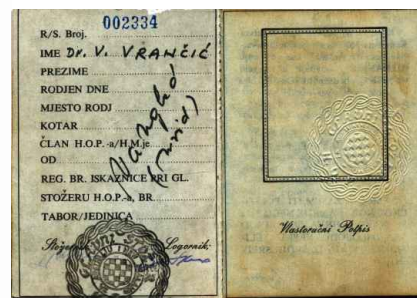 002334
R/S. Broj.
IME Dr. V. VRANČIĆ
PREZIME
RODJEN DNE
MJESTO RODJ
KOTAR
ČLAN H.O.P.-a/H.M.je
OD
REG. BR. ISKAZNICE PRI GL.
STOŽERU H.O.P.-a, BR.
TABOR/JEDINICA
Logornik:
Vlastoručni Potpis